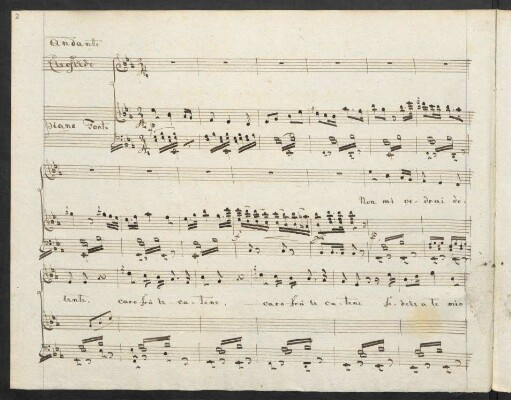 2
Andante
Piano Forte
Non mi vedrai do-
lente. caro frà te ca-tene. caro frà te ca-tene fi-dati a te mio